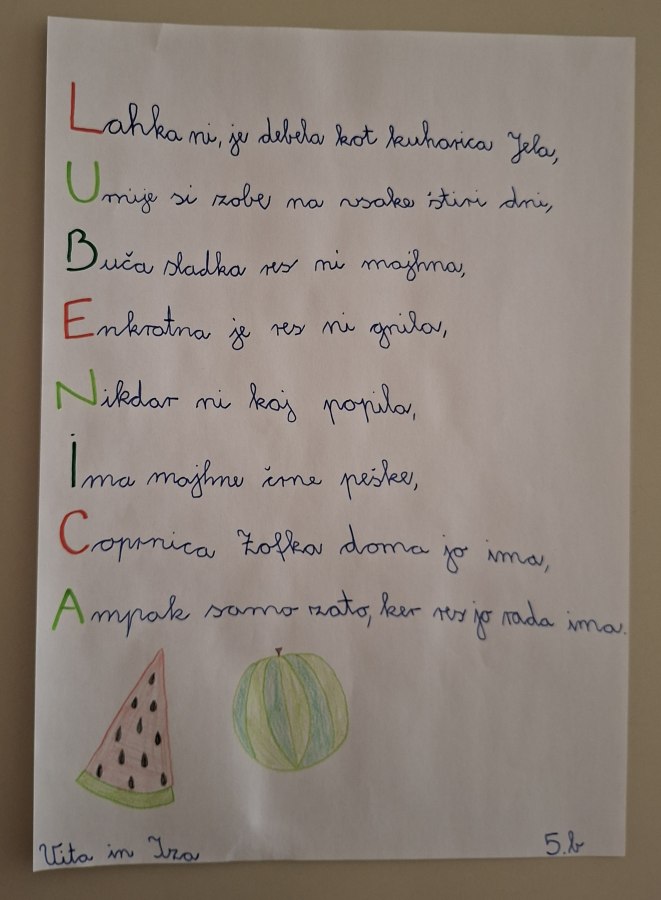 Lahka ni, je debela kot kuharica Jela,
Umije si zobe na vsake štiri dni,
Buča sladka res ni majhna,
Enkratna je res ni gnila,
Nikdar ni kaj popila,
Ima majhne črne peške,
Coprnica Zofka doma jo ima,
Ampak samo zato, ker res jo rada ima.
Vita in Iza
5.b